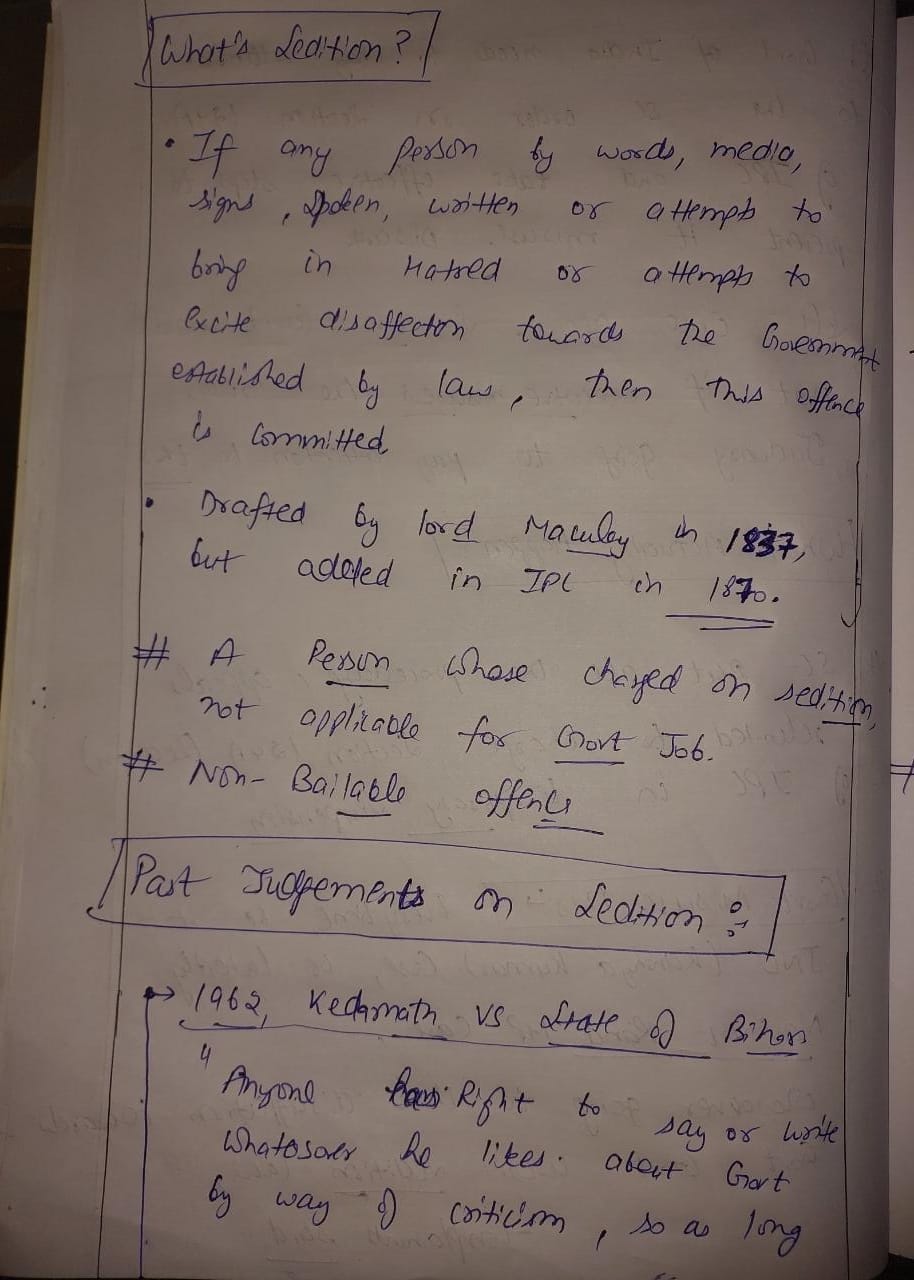 What's Sedition?
• If any person by words, media,
signs, spoken, written or attempts to
bring in Hatred or attempts to
excite disaffection towards the Government
established by law, then this offence
is committed
• Drafted by lord Maculay in 1837,
but added in IPC in 1870.
# A Person whose charged on sedition,
not applicable for Govt Job.
# Non-Bailable offence
Past Judgements on Sedition :-
→ 1962, Kedarnath vs State of Bihar
" Anyone has Right to say or write
whatosover he likes. about Govt
by way of criticism, so as long